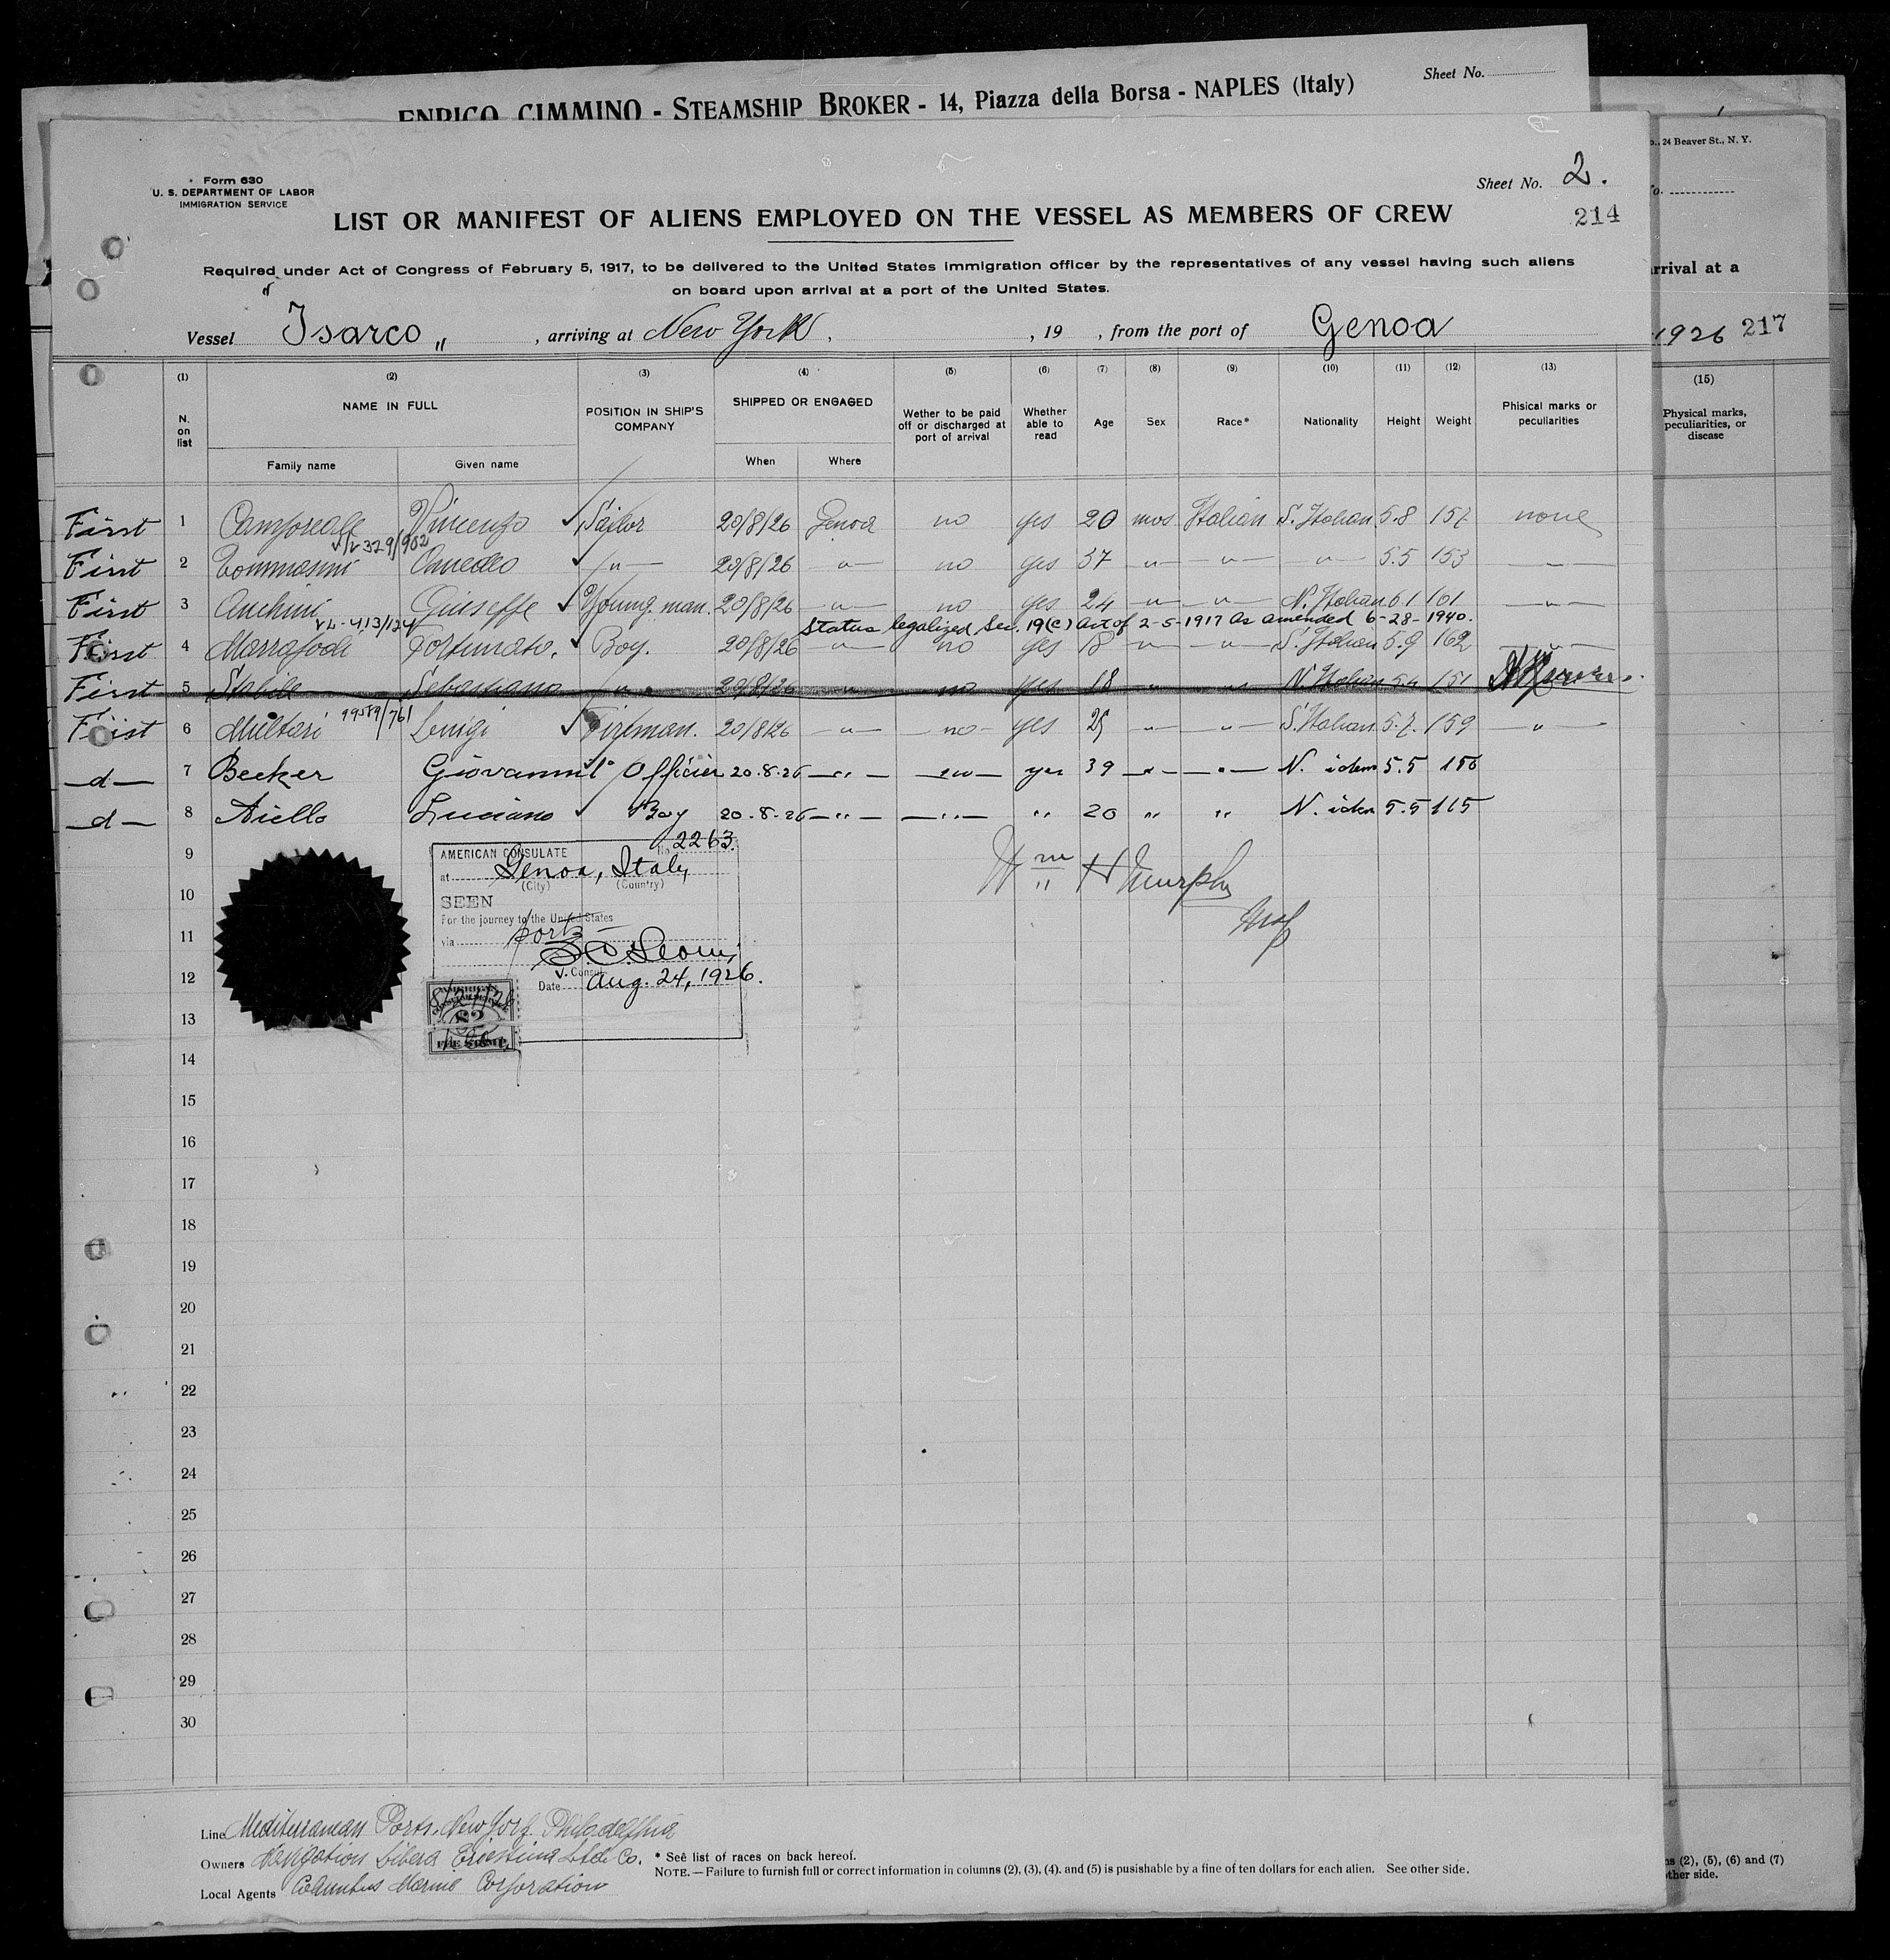 Sheet No.
ENRICO CIMMINO - STEAMSHIP BROKER - 14, Piazza della Borsa - NAPLES (Italy)
24 Beaver St., N. Y.
Form 630
U. S. DEPARTMENT OF LABOR
IMMIGRATION SERVICE
Sheet No. 2.
214
LIST OR MANIFEST OF ALIENS EMPLOYED ON THE VESSEL AS MEMBERS OF CREW
Required under Act of Congress of February 5, 1917, to be delivered to the United States immigration officer by the representatives of any vessel having such aliens
on board upon arrival at a port of the United States.
arrival at a
Vessel "Isarco", arriving at New York, , 19 , from the port of Genoa
1926 217
(1) (2) (3) (4) (5) (6) (7) (8) (9) (10) (11) (12) (13)
(15)
N. on list NAME IN FULL POSITION IN SHIP'S COMPANY SHIPPED OR ENGAGED Wether to be paid off or discharged at port of arrival Whether able to read Age Sex Race* Nationality Height Weight Phisical marks or peculiarities
Physical marks, peculiarities, or disease
Family name Given name When Where
First 1 Camporeale Vincenzo ✓ Sailor 20/8/26 Genoa no yes 20 mas Italian S. Italian 5.8 157 none
329/902
First 2 Tommasini Amedeo ✓ -"- 20/8/26 -"- no yes 37 -"- -"- -"- 5.5 153 -"-
First 3 Anchini Giuseppe ✓ Young man. 20/8/26 -"- no yes 24 -"- -"- N. Italian 6.1 161 -"-
413/124 Status legalized Sec. 19(c) Act of 2-5-1917 as amended 6-28-1940.
First 4 Marrapodi Fortunato. ✓ Boy. 20/8/26 -"- no yes 18 -"- -"- S. Italian 5.9 162 -"-
First 5 Stabile Sebastiano -"- 20/8/26 " no yes 18 " " N. Italian 5.4 151
99589/761
First 6 Militari Luigi ✓ Fireman. 20/8/26 -"- -no- yes 25 -"- -"- S. Italian 5.7. 159 -"-
-d- 7 Becker Giovanni 1° Officier 20.8.26 -"- -no- yes 39 -"- -"- N. idem 5.5 156
-d- 8 Aiello Luciano ✓ Boy 20.8.26 -"- -"- " 20 " " N. idem 5.5 115
9
10
11
12
13
14
15
16
17
18
19
20
21
22
23
24
25
26
27
28
29
30
AMERICAN CONSULATE No 2263.
at Genoa, Italy
(City) (Country)
SEEN
For the journey to the United States
via ports
V. Consul
Date Aug. 24, 1926.
AMERICAN
$2
FEE STAMP
Wm H Murphy
Line Mediterranean Ports, New York Philadelphia
Owners Navigation Libera Triestina Ltd. Co.
Local Agents Columbus Marine Corporation
* See list of races on back hereof.
NOTE. — Failure to furnish full or correct information in columns (2), (3), (4). and (5) is pusishable by a fine of ten dollars for each alien. See other side.
ns (2), (5), (6) and (7)
other side.